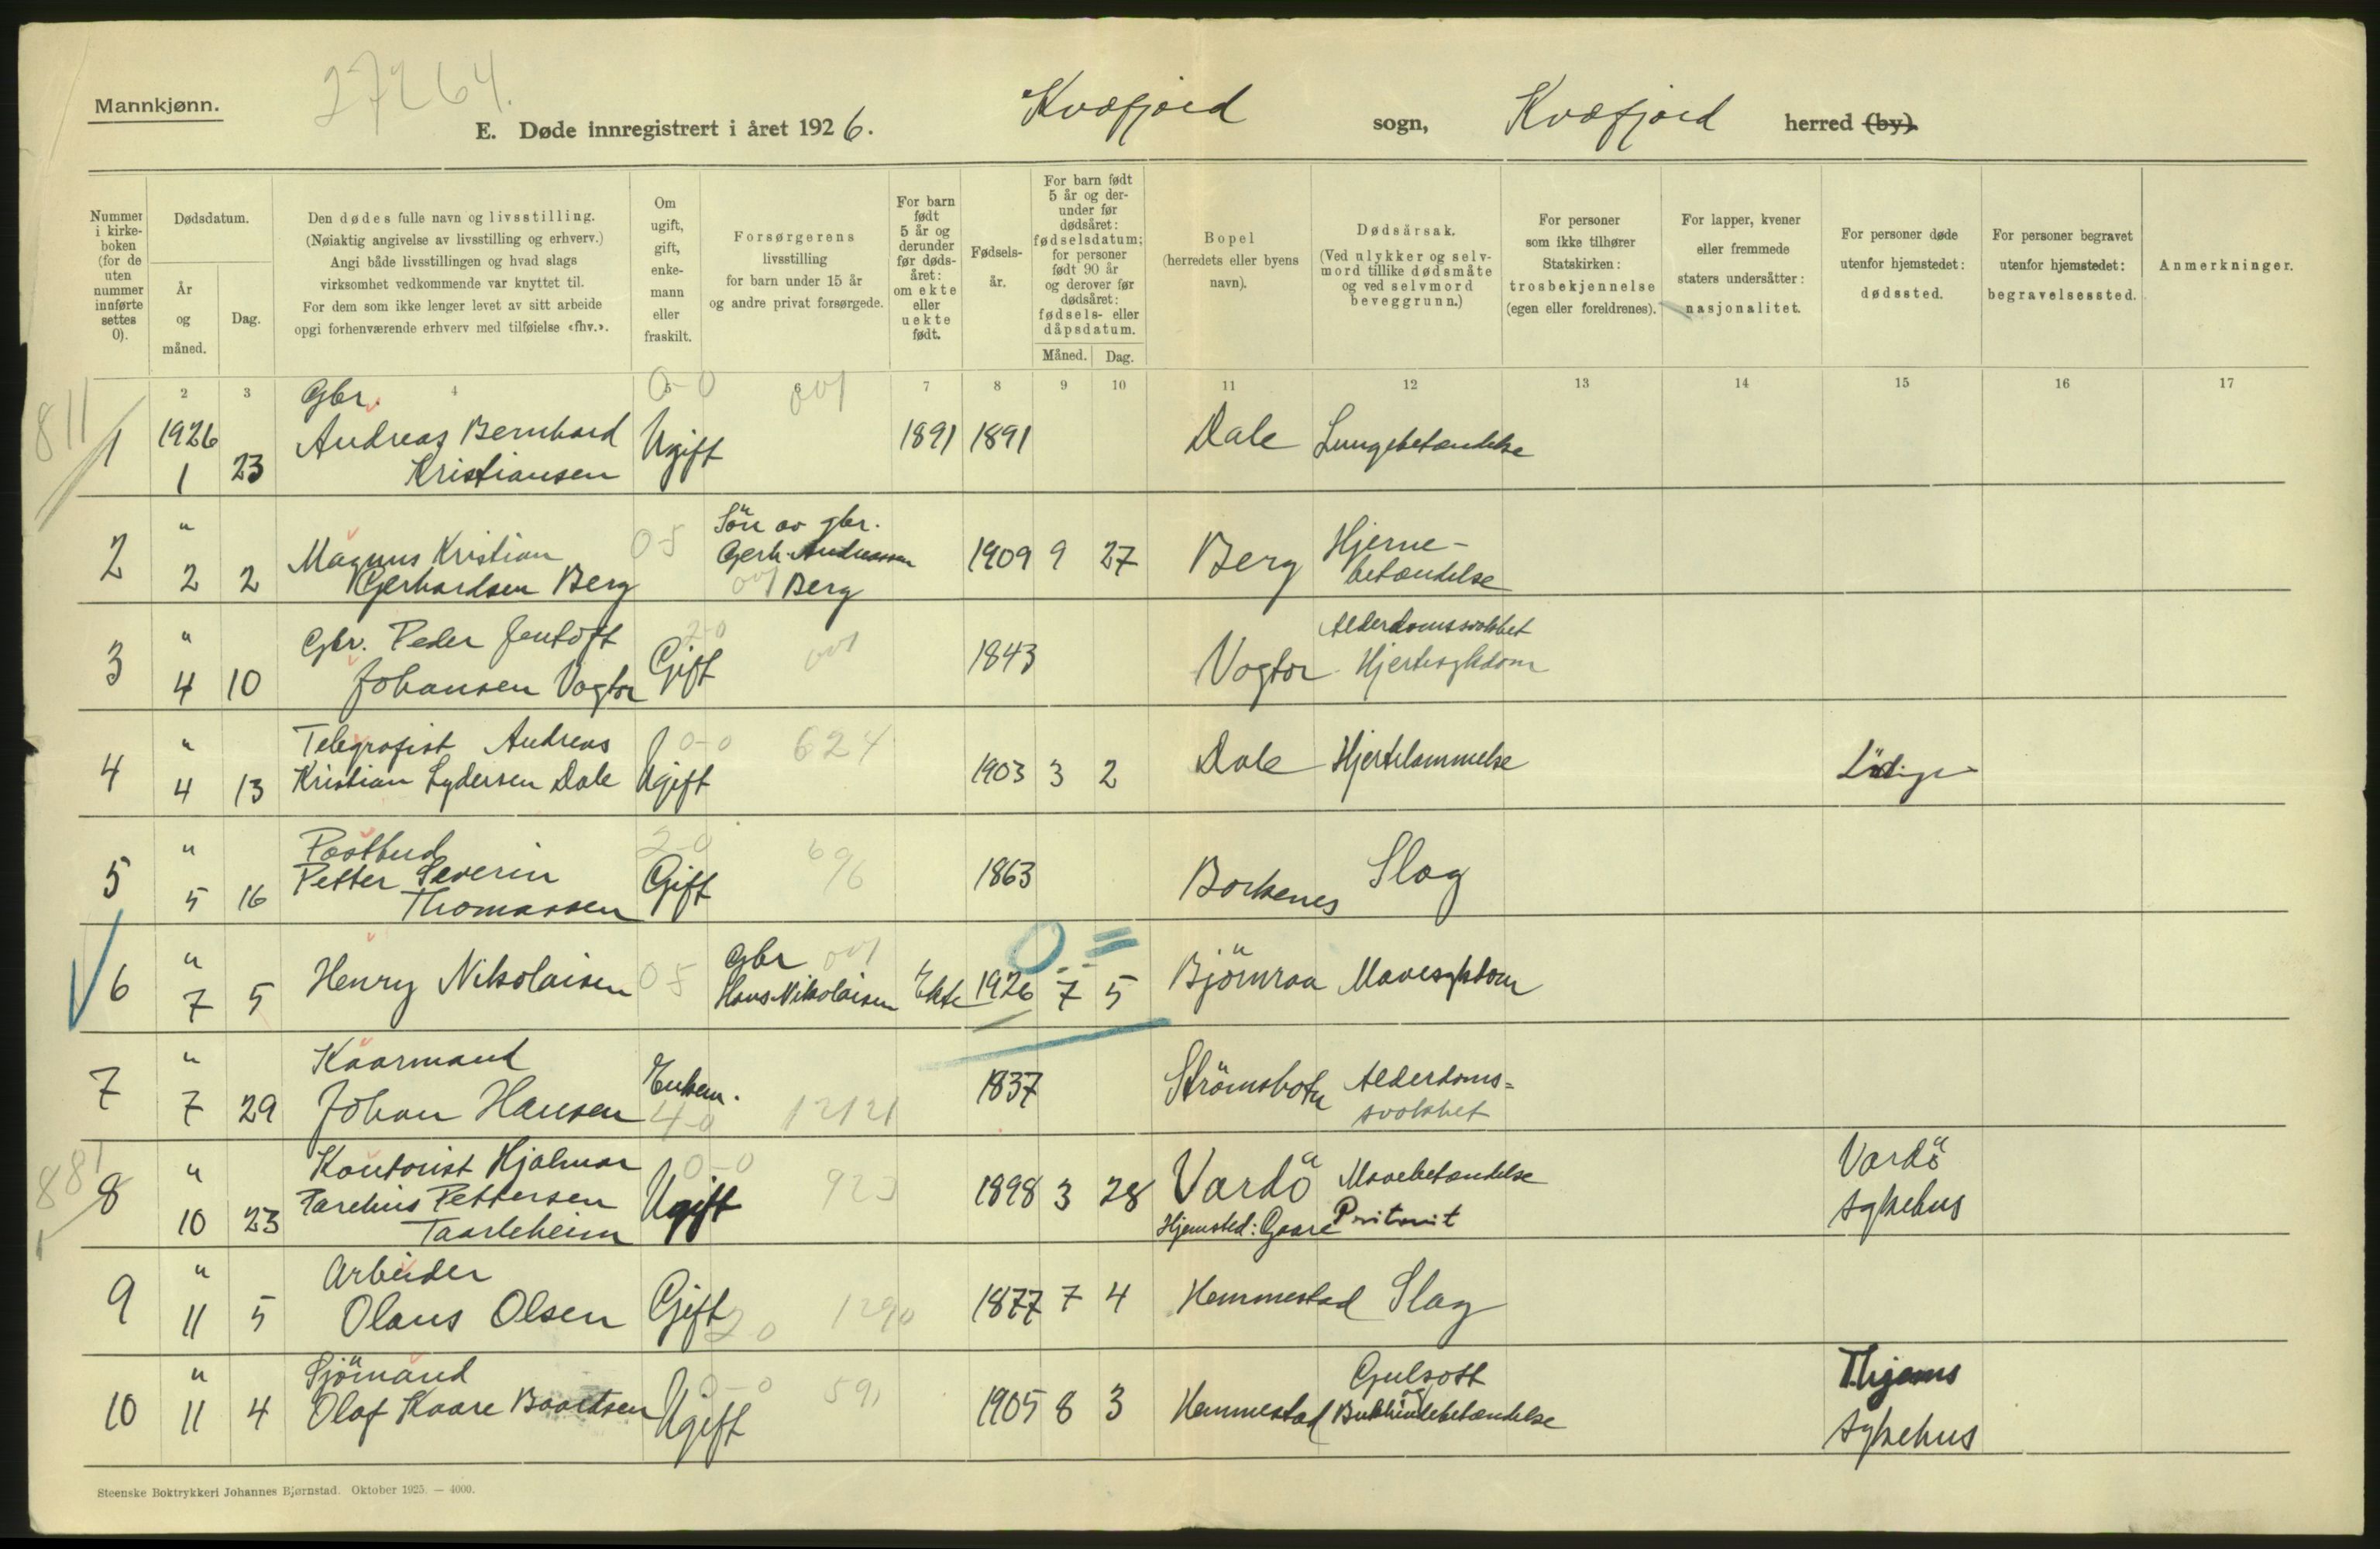 Mannkjønn.
27264.
E. Døde innregistrert i året 1926.
Kvæfjord sogn, Kvæfjord herred (by).
Nummer i kirkeboken (for de uten nummer innførte settes 0).
Dødsdatum.
År og måned.
Dag.
Den dødes fulle navn og livsstilling.
(Nøiaktig angivelse av livsstilling og erhverv.)
Angi både livsstillingen og hvad slags
virksomhet vedkommende var knyttet til.
For dem som ikke lenger levet av sitt arbeide
opgi forhenværende erhverv med tilføielse «fhv.».
Om ugift, gift, enkemann eller fraskilt.
Forsørgerens
livsstilling
for barn under 15 år
og andre privat forsørgede.
For barn født 5 år og derunder før dødsåret: om ekte eller uekte født.
Fødselsår.
For barn født 5 år og derunder før dødsåret: fødselsdatum; for personer født 90 år og derover før dødsåret: fødsels- eller dåpsdatum.
Måned. Dag.
Bopel
(herredets eller byens
navn).
Dødsårsak.
(Ved ulykker og selvmord tillike dødsmåte og ved selvmord beveggrunn.)
For personer
som ikke tilhører
Statskirken:
trosbekjennelse
(egen eller foreldrenes).
For lapper, kvener
eller fremmede
staters undersåtter:
nasjonalitet.
For personer døde
utenfor hjemstedet:
dødssted.
For personer begravet
utenfor hjemstedet:
begravelsessted.
Anmerkninger.
2 3 4 5 6 7 8 9 10 11 12 13 14 15 16 17
811
1 1926 1 23 Gbr. Andreas Bernhard Kristiansen 0-0 Ugift 001 1891 1891 Dale Lungebetændelse
2 " 2 2 Magnus Kristian Gerhardsen Berg 0-5 Sön av gbr. Gerh. Andreassen Berg 001 1909 9 27 Berg Hjerne-betændelse
3 " 4 10 Gbr. Peder Jentoft Johansen Vogtor 2-0 Gift 001 1843 Vogtor Alderdomssvakhet Hjertesykdom
4 " 4 13 Telegrafist Andreas Kristian Lydersen Dale 0-0 Ugift 624 1903 3 2 Dale Hjertelammelse
5 " 5 16 Postbud Petter Severin Thomassen 2-0 Gift 696 1863 Borkenes Slag
6 " 7 5 Henry Nikolaisen 0 5 Gbr 001 Hans Nikolaisen Ekte 1926 7 5 Björnraa Mavesykdom
7 " 7 29 Kaarmand Johan Hansen Enkem. 4-0 1212 1837 Strömsbotn Alderdoms=svakhet
881
8 " 10 23 Kontorist Hjalmar Pettersen Taarleheim 0-0 Ugift 923 1898 3 28 Vardö Hjemsted: Gaare Mavebetændelse Vardö sykehus
9 " 11 5 Arbeider Olaus Olsen Gift 2 0 1290 1877 7 4 Hemmestad Slag
10 " 11 4 Sjömand Olaf Kaare Baardsen 0-0 Ugift 591 1905 8 3 Hemmestad Gulsott og Bukhindebetændelse sykehus
Steenske Boktrykkeri Johannes Bjørnstad. Oktober 1925. — 4000.